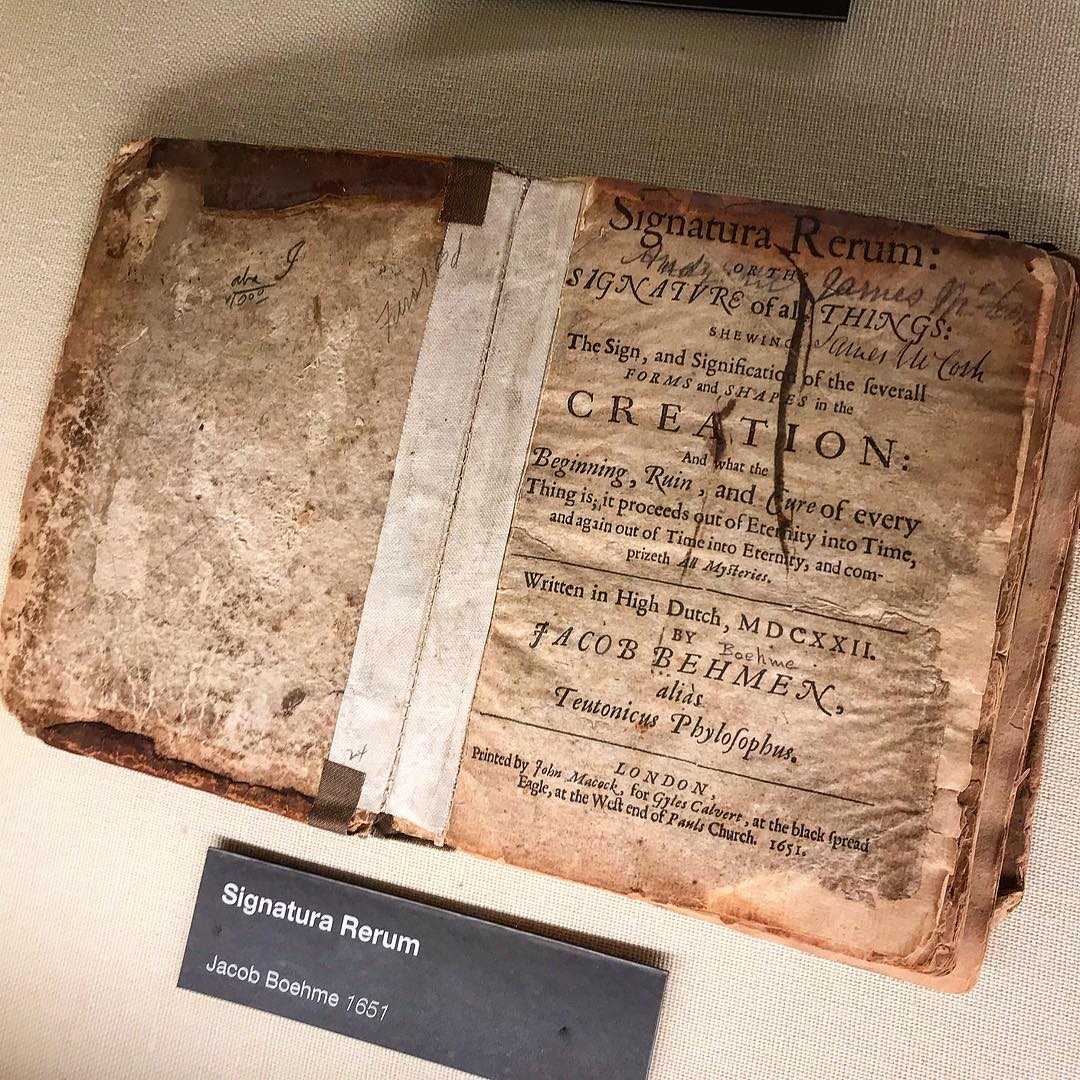 abe
J
41000
first ed
Signatura Rerum:
OR THE
SIGNATVRE of all THINGS:
James
James McCosh
SHEWING
The Sign, and Signification of the ſeverall
FORMS and SHAPES in the
CREATION:
And what the
Beginning, Ruin, and Cure of every
Thing is; it proceeds out of Eternity into Time,
and again out of Time into Eternity, and com-
prizeth All Myſteries.
Written in High Dutch, MDCXXII.
BY
Boehme
JACOB BEHMEN,
aliàs
Teutonicus Phyloſophus.
LONDON,
Printed by John Macock, for Gyles Calvert, at the black ſpread
Eagle, at the Weſt end of Pauls Church. 1651.
Signatura Rerum
Jacob Boehme 1651